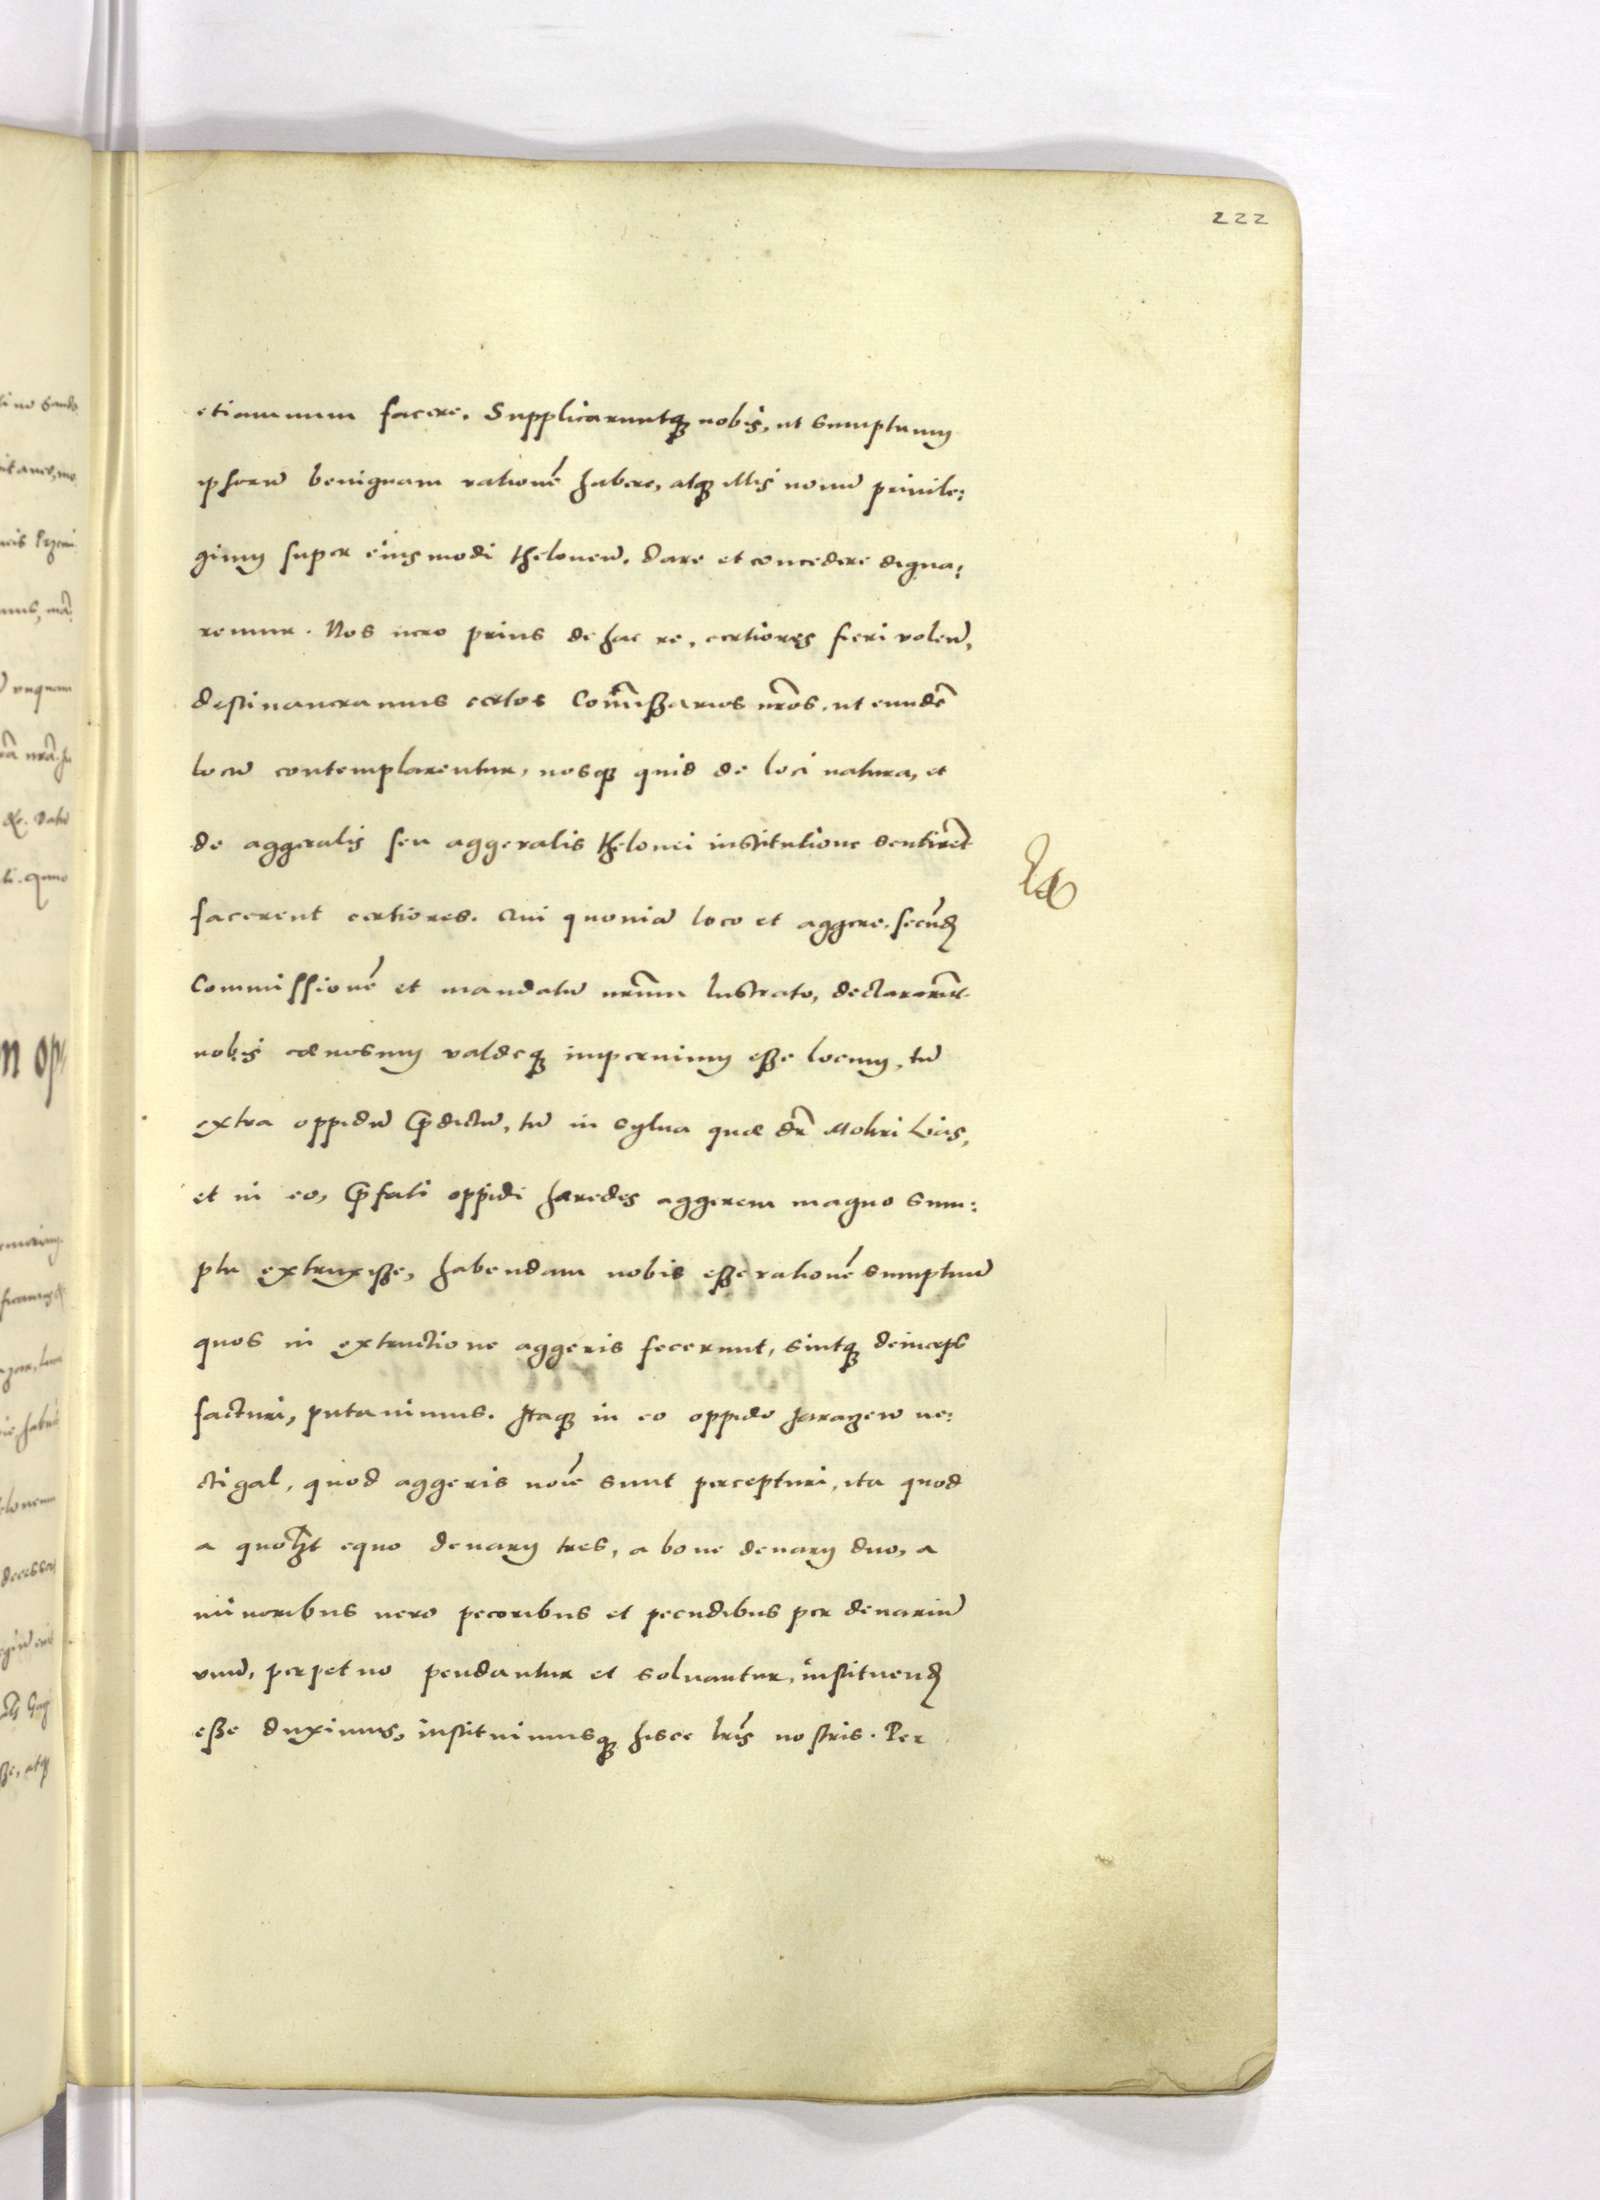 222
etiamnum facere. Supplicaruntq3 nobis, ut sumptuum
ipsorū benignam rationē habere, atq3 illis nouū priuile:
gium super eiusmodi theloneū, dare et concedere digna:
remur. Nos uero prius de hac re, certiores fieri volen̄,
destinaueramus certos Com̄issarios nr̄os, ut eundē
locū contemplarentur, nosq3 quid de loci natura, et
de aggeralis seu aggeralis thelonei institutione sentirēt
facerent certiores. Qui quoniā loco et aggere, secūd
Commissionē et mandatū nr̄um lustrato, declararūt
nobis cœnosum valdeq3 imperuium esse locum, tū
extra oppidū p̄dictū, tū in sylua quæ dr̄ Mokri Lias,
et in eo, p̄fati oppidi hæredes aggerem magno sum:
ptu extruxisse, habendam nobis esse rationē sumptuū
quos in extructione aggeris fecerunt, sintq3 deinceps
facturi, putauimus. Itaq3 in eo oppido ue:
ctigal, quod aggeris noīe sunt percepturi, ita quod
a quol̄t equo denarij tres, a boue denarij duo, a
minoribus uero pecoribus et pecudibus per denariū
vnū, perpetuo pendantur et soluantur, instituend
esse duximus, instituimusq3 hisce lr̄is nostris. Per